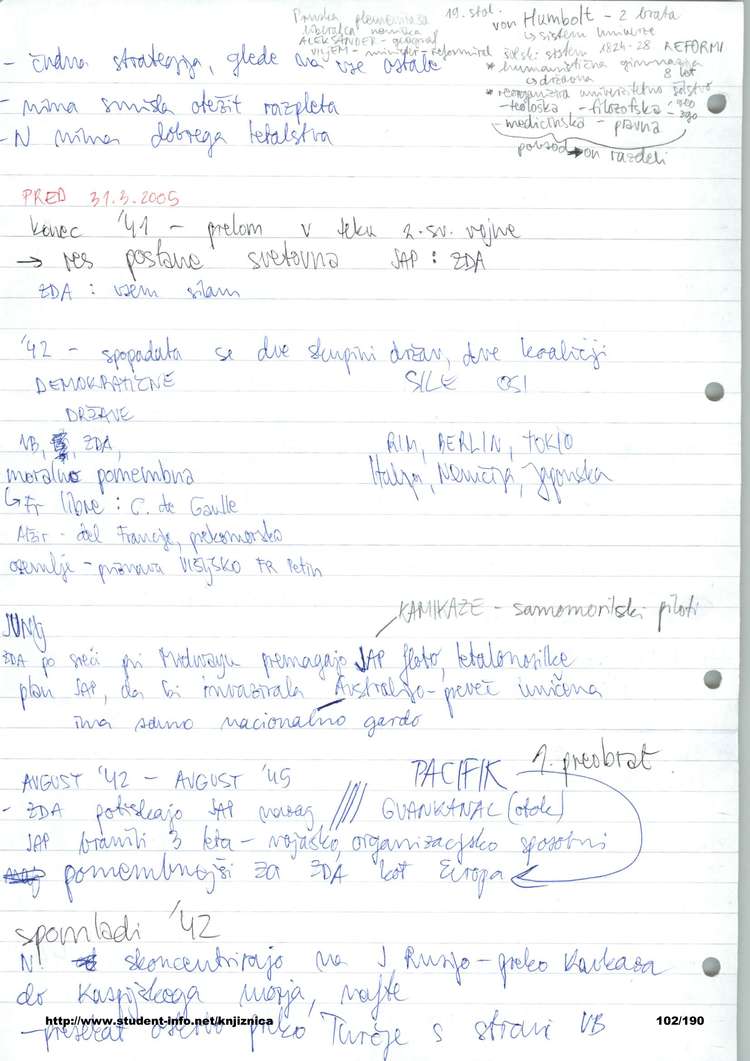 Pruska plemenitaša 19. stol.
liberalca nemška
ALEKSANDER - geograf
VILJEM - minister - reformiral
von Humbolt - 2 brata
↳ sistem univerze
šolski sistem 1824-28 REFORMI
* humanistična gimnazija 8 let
↳ državna
* reorganizira univerzitetno šolstvo
- teološka - filozofska
- medicinska - pravna
povsod → on razdeli
- čudna strategija, glede na vse ostale
- nima smisla otežit razpleta
- N nima dobrega letalstva
PRED 31.3.2005
konec '41 - prelom v teku 2. sv. vojne
→ res postane svetovna JAP : ZDA
ZDA : vsem silam
'42 - spopadata se dve skupini držav, dve koaliciji
DEMOKRATIČNE SILE OSI
DRŽAVE
VB, ZDA, RIM, BERLIN, TOKIO
moralno pomembna Italija, Nemčija, Japonska
↳ Fr libre : C. de Gaulle
Alžir - del Francije, prekomorsko
ozemlje - priznava Višijsko FR Petin
KAMIKAZE - samomorilski piloti
JUNIJ
ZDA po sreči pri Midwayu premagajo JAP floto, letalonosilke
plan JAP, da bi invazirala Avstralijo - preveč uničena
ima samo nacionalno gardo
AVGUST '42 - AVGUST '45 PACIFIK 1. preobrat
- ZDA potiskajo JAP nazaj //// GUANKANAL (otok)
JAP branili 3 leta - vojaško, organizacijsko sposobni
pomembnejši za ZDA kot Evropa
spomladi '42
N! skoncentrirajo na J Rusijo - preko Kavkaza
do Kaspijskega morja, nafte
- presekat preko Turčije s strani VB
http://www.student-info.net/knjiznica 102/190